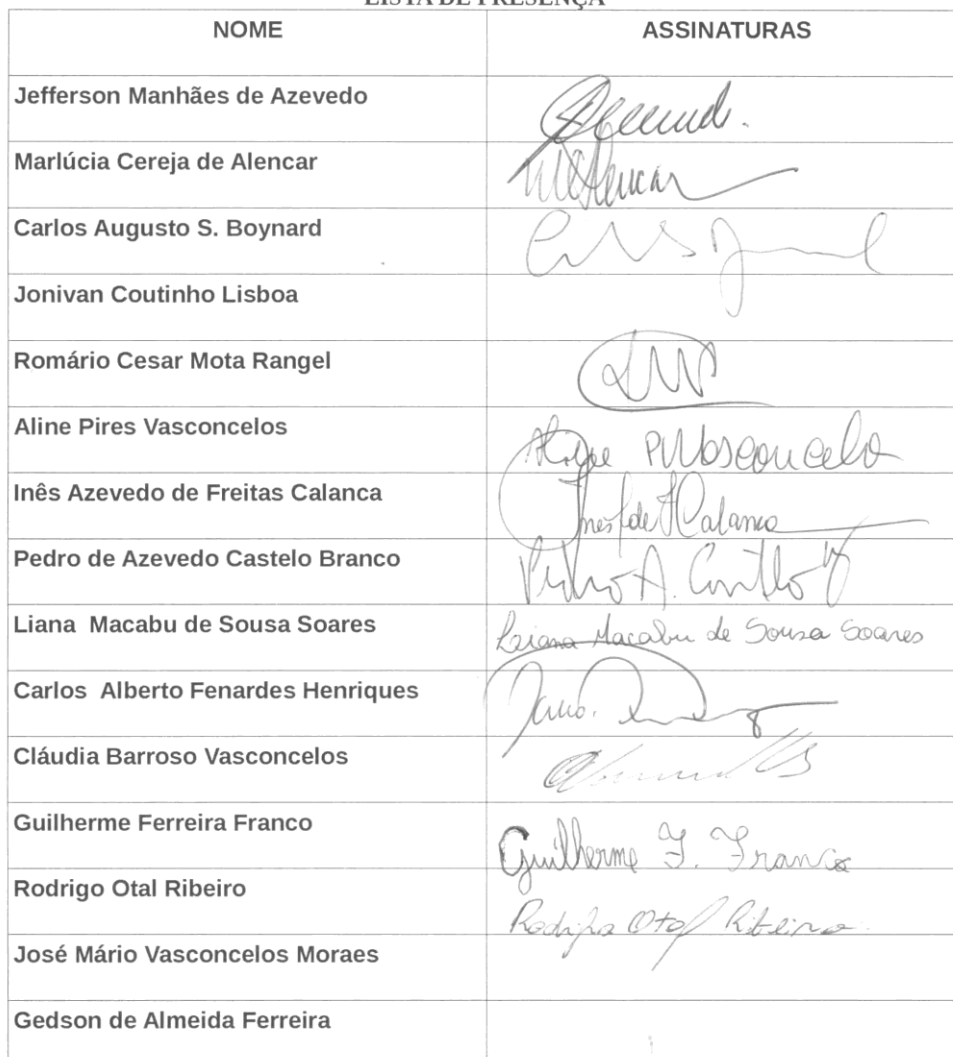 LISTA DE PRESENÇA
NOME ASSINATURAS
Jefferson Manhães de Azevedo
Marlúcia Cereja de Alencar
Carlos Augusto S. Boynard
Jonivan Coutinho Lisboa
Romário Cesar Mota Rangel
Aline Pires Vasconcelos Aline P Vasconcelos
Inês Azevedo de Freitas Calanca
Pedro de Azevedo Castelo Branco
Liana Macabu de Sousa Soares Liana Macabu de Sousa Soares
Carlos Alberto Fenardes Henriques
Cláudia Barroso Vasconcelos
Guilherme Ferreira Franco Guilherme F. Franco
Rodrigo Otal Ribeiro Rodrigo Otal Ribeiro
José Mário Vasconcelos Moraes
Gedson de Almeida Ferreira